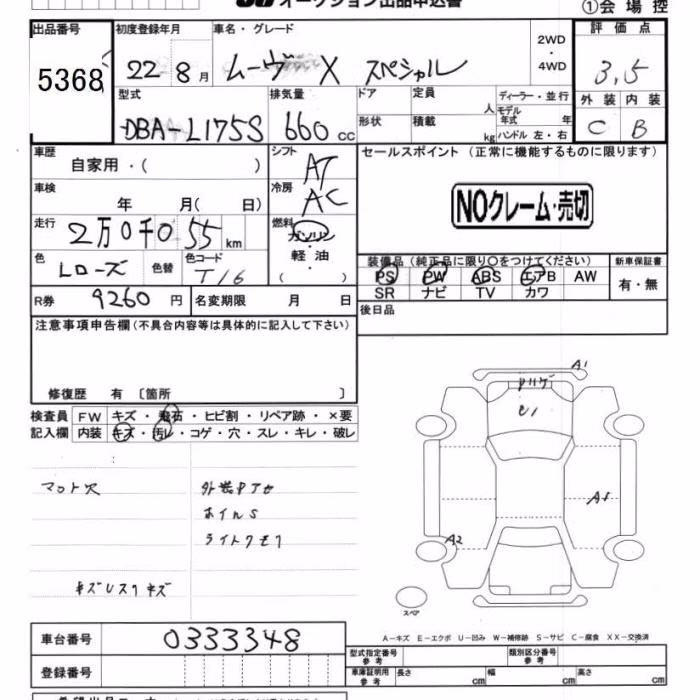 オークション出品申込書
①会場控
出品番号 初度登録年月 車名・グレード 2WD ・ 4WD 評価点
5368 22-8月 ムーヴ X スペシャル 3.5
型式 排気量 ドア 定員 人 ディーラー・並行 外装 内装
DBA-L175S 660cc 形状 積載 kg モデル年式 年 C B
ハンドル 左・右
車歴 自家用・( ) シフト AT セールスポイント (正常に機能するものに限ります)
車検 年 月( 日) 冷房 AC
NOクレーム・売切
走行 2万0千055km 燃料 ガソリン・軽油・( )
色 Lローズ 色替 色コード T16
装備品(純正品に限り○をつけてください) 新車保証書
PS PW ABS エアB AW 有・無
SR ナビ TV カワ
R券 9260円 名変期限 月 日 後日品
注意事項申告欄(不具合内容等は具体的に記入して下さい)
修復歴 有〔箇所 〕
検査員 FW キズ・飛石・ヒビ割・リペア跡・×要
記入欄 内装 キズ・汚レ・コゲ・穴・スレ・キレ・破レ
A1
A1
A2
マット穴
ホイルS
スペア
A-キズ E-エクボ U-凹み W-補修跡 S-サビ C-腐食 XX-交換済
車台番号 0333348
型式指定番号 参考 類別区分番号 参考
登録番号 車庫証明用 参考 長さ cm 幅 cm 高さ cm